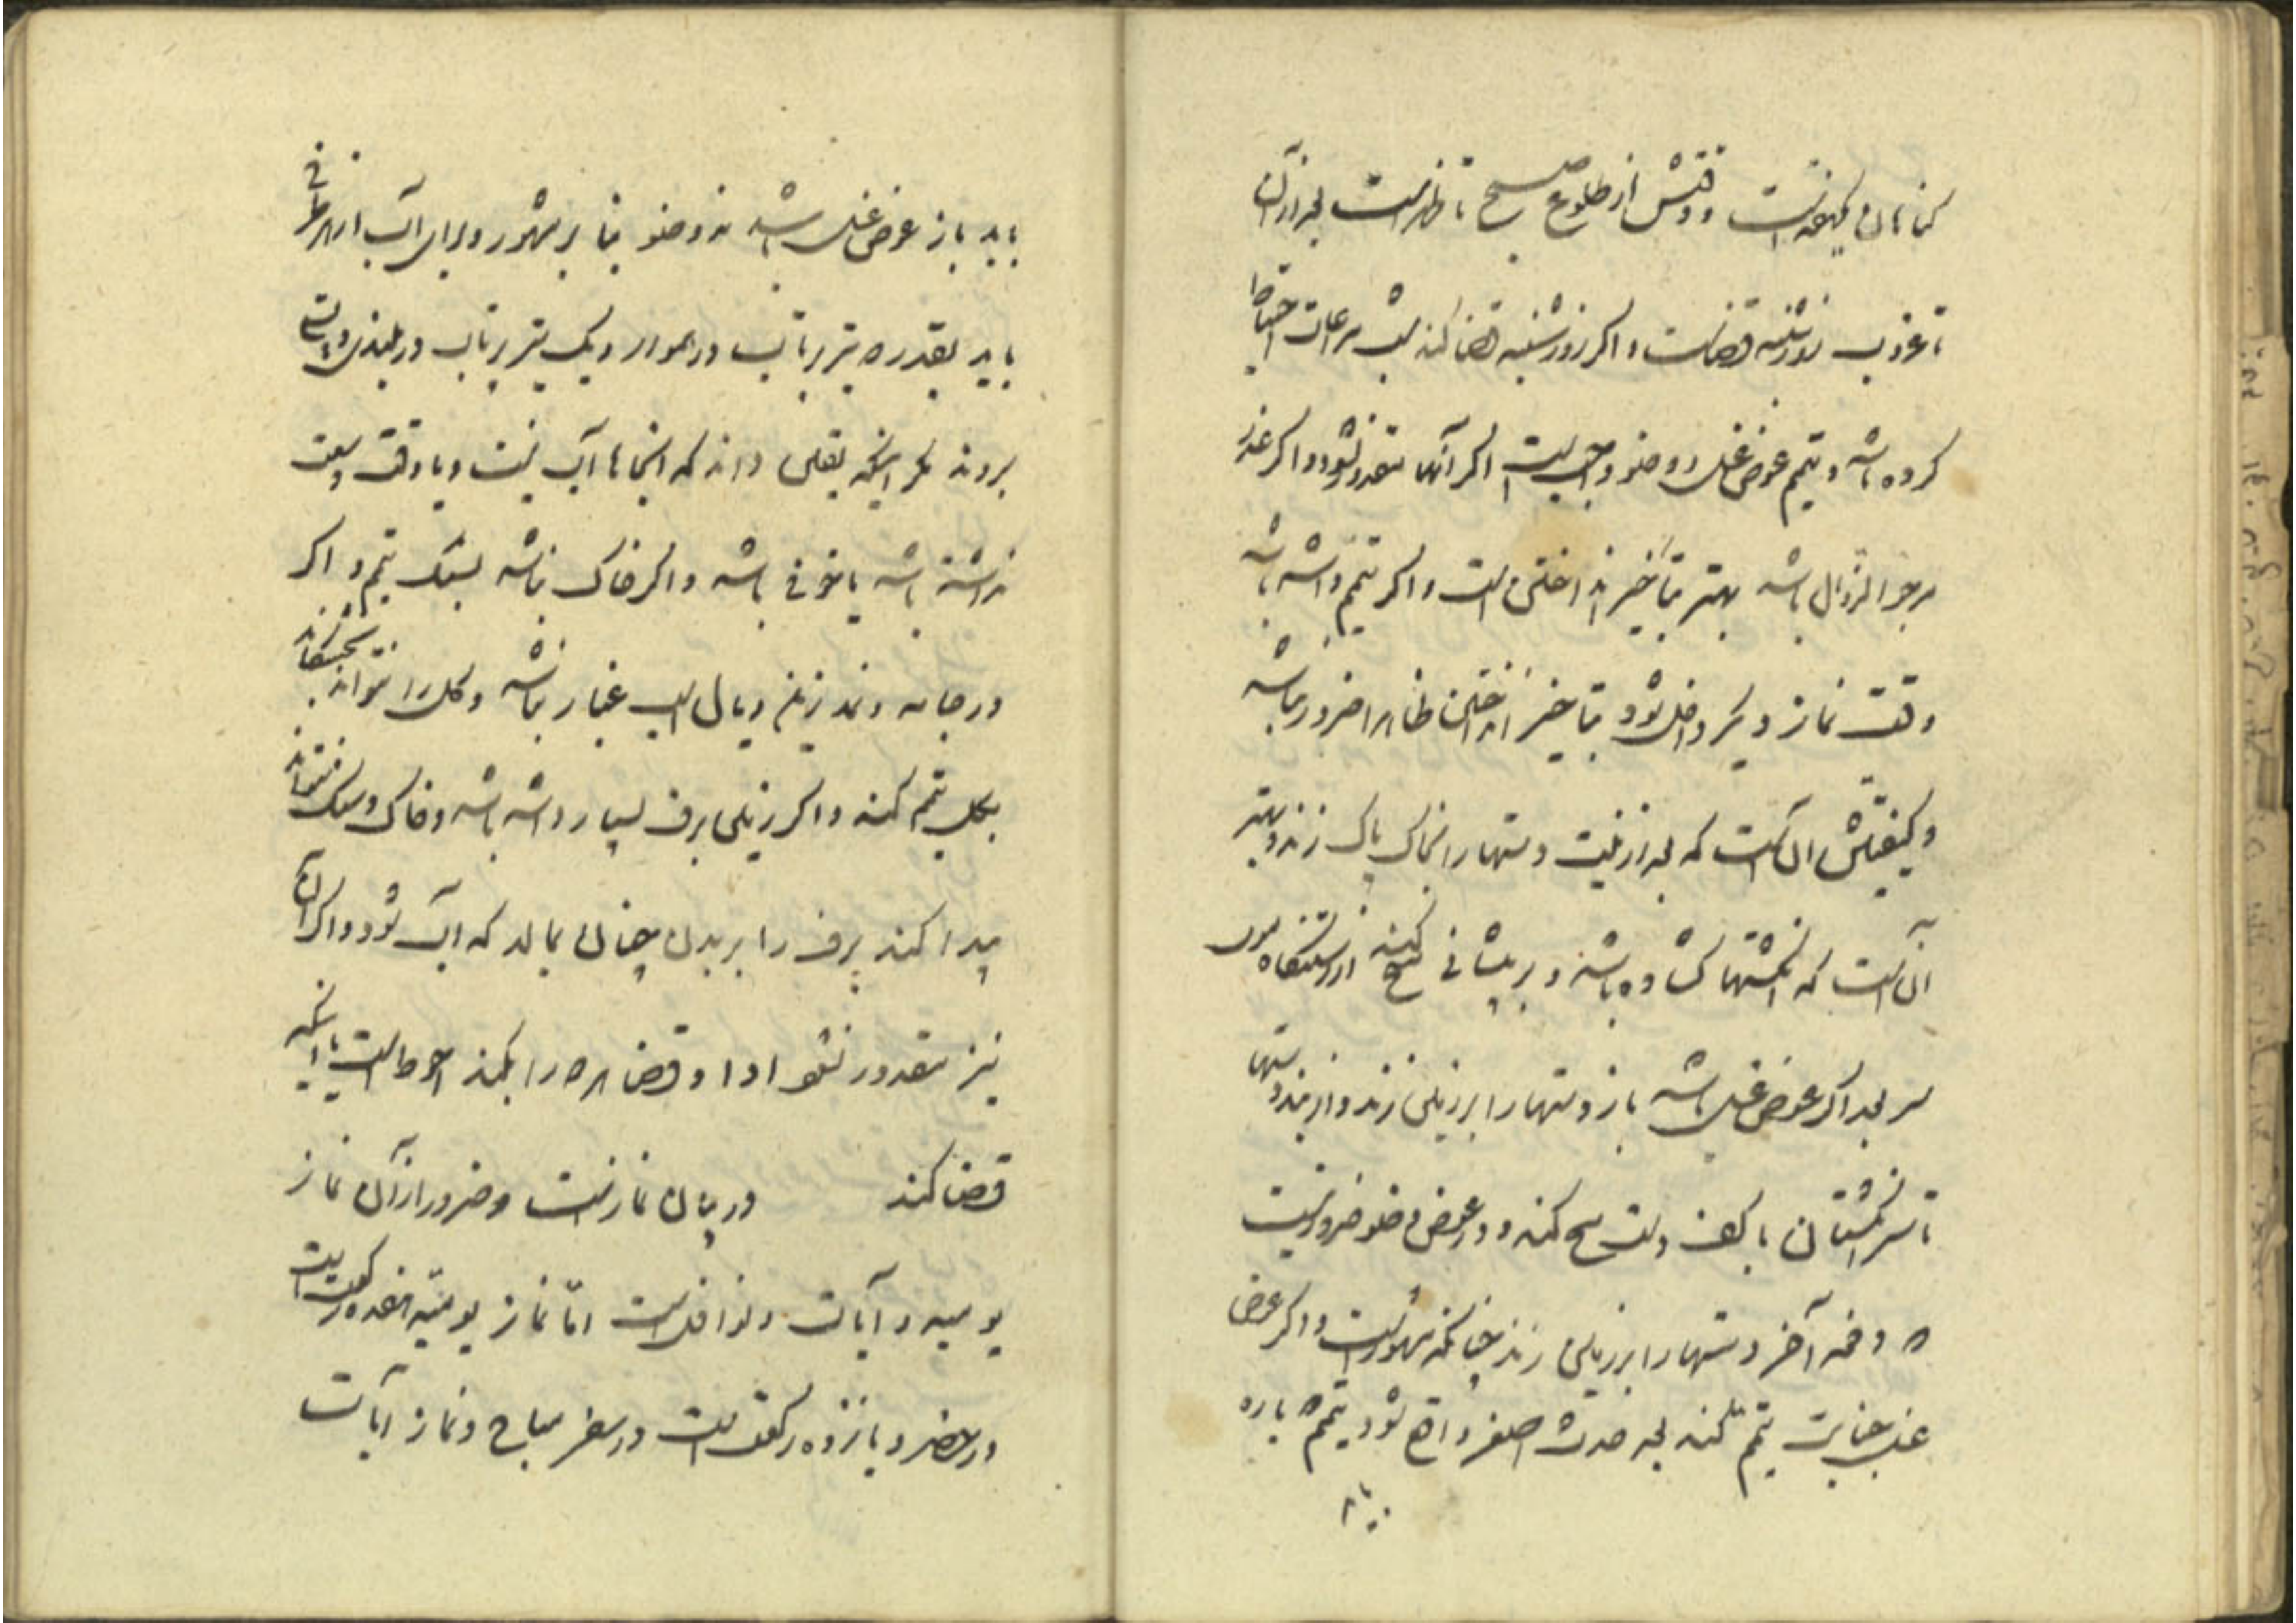 کناهان یکهفته است و وقتش از طلوع صبح تا ظهر است بعد از آن
تا غروب روز شنبه قضاست و اگر روز شنبه قضا کند مراعات احتیاط
کرده باشد و تیمم عوض غسل و وضو واجب است اگر آنها مقدور نشود و اگر عذر
مرجو الزوال باشد بهتر بتأخیر انداختن است و اگر تیمم داشته باشد
وقت نماز دیگر داخل شود بتأخیر انداختن ظاهرا ضرور نباشد
و کیفیتش آن است که بعد از نیت دستها را بخاک پاک زند و بهتر
آن است که انگشتها گشاده باشد و بر پیشانی کشد از رستنگاه موی
سر بعد اگر عوض غسل باشد باز دستها را بر زمین زند و از بند دستها
تا سر انگشتان با کف دست مسح کند و در عوض وضو ضرور نیست
که دفعه آخر دستها را بر زمین زند چنانکه مشهور است و اگر عوض
غسل جنابت تیمم کند بعد حدث اصغر واقع شود تیمم که باره
باید
باید باز عوض غسل باشد نه وضو بنا بر مشهور و برای آب از هر طرفی
باید بقدر دو تیر پرتاب در هموار و یک تیر پرتاب در بلندی و پستی
برود مگر اینکه یقین داند که اینجاها آب نیست و یا وقت وسعت
نداشته باشد یا خوفی باشد و اگر خاک نباشد بسنگ تیمم و اگر
در جامه و نمد زین و یال اسب غبار نباشد و گل را نتواند بخشکاند
بگل تیمم کند و اگر زمین برف بسیار داشته باشد و خاک و سنگ نتواند
پیدا کند برف را بر بدن چنان بمالد که آب شود و اگر آن
نیز مقدور نشود ادا و قضا هر دو را بکند احوط است یا اینکه
قضا کند در بیان نماز است و ضرور از آن نماز
یومیه و آیات و نوافل است امّا نماز یومیّه هفده رکعت است
در حضر و یازده رکعت است در سفر مباح و نماز آیات